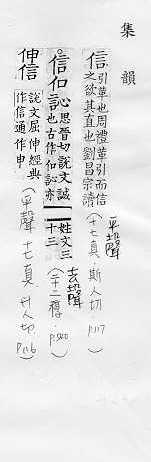 集韻
信引華也周禮華引而信之欲其直也劉昌宗讀
平聲
(十七真．斯人切．P.117)
信㐰訫思晉切說文誠也古作㐰訫亦姓文三十三
去聲
(二十二稕．P.540)
伸信說文屈伸經典作信通作申
(平聲十七真．升人切 P.116)